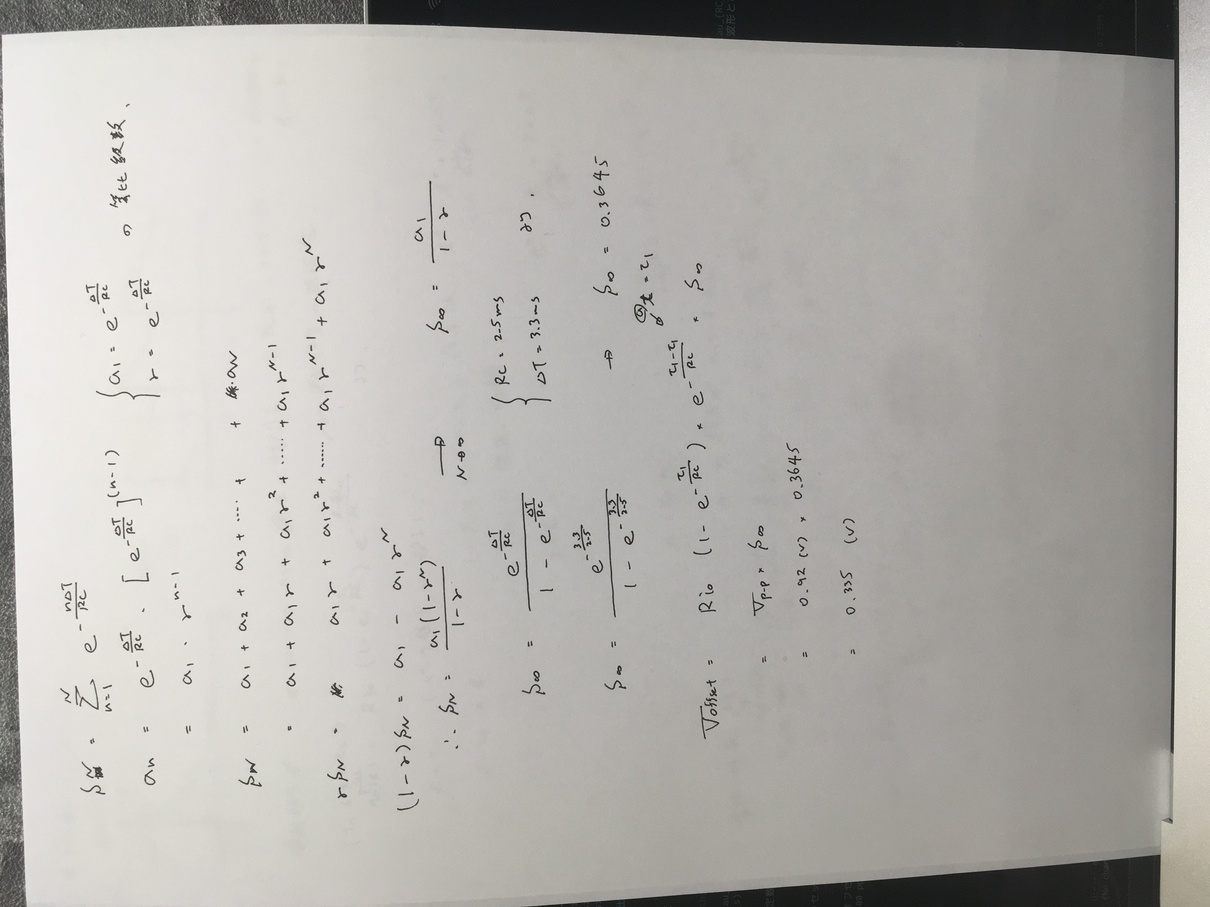 S_N = Σ_{n=1}^{N} e^{-nΔT/RC}
a_n = e^{-ΔT/RC} · [e^{-ΔT/RC}]^{(n-1)} { a_1 = e^{-ΔT/RC} r = e^{-ΔT/RC} の等比級数、
= a_1 · r^{n-1}
S_N = a_1 + a_2 + a_3 + ···· + + a_N
= a_1 + a_1 r + a_1 r^2 + ····· + a_1 r^{N-1}
r S_N = a_1 r + a_1 r^2 + ····· + a_1 r^{N-1} + a_1 r^N
(1-r) S_N = a_1 - a_1 r^N
∴ S_N = a_1(1-r^N)/(1-r) → N→∞ S_∞ = a_1/(1-r)
S_∞ = e^{-ΔT/RC}/(1 - e^{-ΔT/RC}) { RC = 2.5ms ΔT = 3.3ms より.
S_∞ = e^{-3.3/2.5}/(1 - e^{-3.3/2.5}) → S_∞ = 0.3645
@ t = τ_1
V_offset = R i_0 (1 - e^{-τ_1/RC}) × e^{-(τ_1-τ_1)/RC} × S_∞
= V_{p-p} × S_∞
= 0.92 (V) × 0.3645
= 0.335 (V)